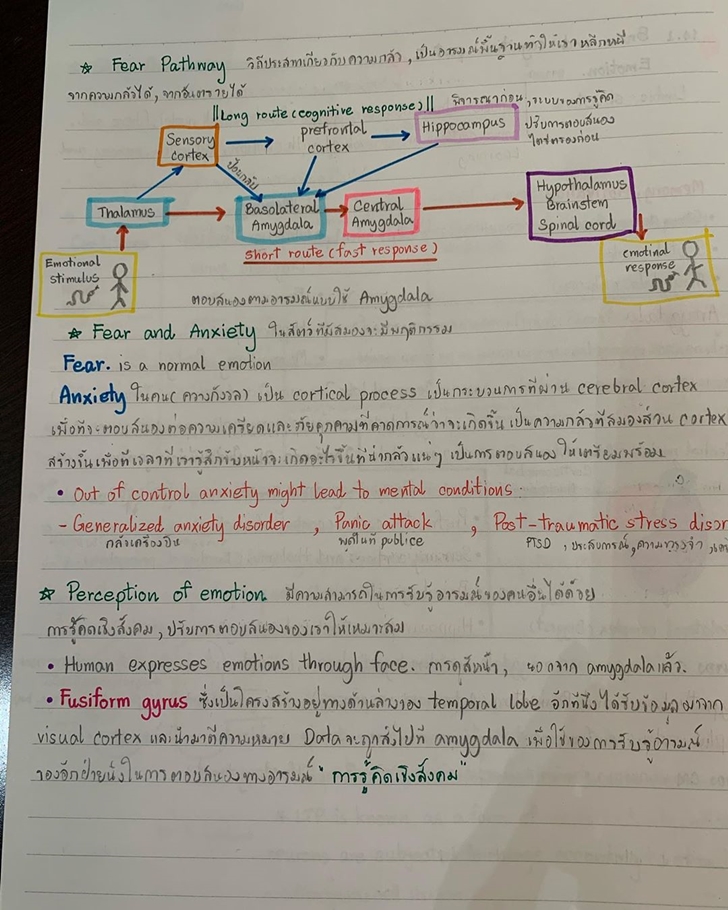 ☆ Fear Pathway วิถีประสาทเกี่ยวกับความกลัว, เป็นอารมณ์พื้นฐานทำให้เราหลีกหนี
จากความกลัวได้, จากอันตรายได้
||Long route (cognitive response)|| พิจารณาก่อน, ระบบของการรู้คิด
ปรับการตอบสนอง
ไตร่ตรองก่อน
Sensory cortex
prefrontal cortex
Hippocampus
ป้อนกลับ
Thalamus
Basolateral Amygdala
Central Amygdala
Hypothalamus
Brainstem
Spinal cord
short route (fast response)
Emotional stimulus
emotinal response
ตอบสนองตามอารมณ์แบบใช้ Amygdala
☆ Fear and Anxiety ในสัตว์ที่มีสมองจะมีพฤติกรรม
Fear. is a normal emotion
Anxiety ในคน (ความกังวล) เป็น cortical process เป็นกระบวนการที่ผ่าน cerebral cortex
เพื่อที่จะตอบสนองต่อความเครียดและภัยคุกคามที่คาดการณ์ว่าจะเกิดขึ้น เป็นความกลัวที่สมองส่วน cortex
สร้างขึ้นเพื่อที่เวลาที่เรารู้สึกข้างหน้าจะเกิดอะไรขึ้นที่น่ากลัวแน่ๆ เป็นการตอบสนองให้เตรียมพร้อม
• Out of control anxiety might lead to mental conditions.
- Generalized anxiety disorder , Panic attack , Post-traumatic stress disor
กลัวเครื่องบิน พูดในที่ publice PTSD , ประสบการณ์, ความทรงจำ
☆ Perception of emotion มีความสามารถในการรับรู้อารมณ์ของคนอื่นได้ด้วย
การรู้คิดเชิงสังคม, ปรับการตอบสนองของเราให้เหมาะสม
• Human expresses emotions through face. การดูสีหน้า, นอกจาก amygdala แล้ว.
• Fusiform gyrus ซึ่งเป็นโครงสร้างอยู่ทางด้านล่างของ temporal lobe อีกที่นึงได้รับข้อมูลมาจาก
visual cortex และนำมาตีความหมาย Data จะถูกส่งไปที่ amygdala เพื่อใช้ของการรับรู้อารมณ์
ของอีกฝ่ายนึงในการตอบสนองทางอารมณ์ "การรู้คิดเชิงสังคม"